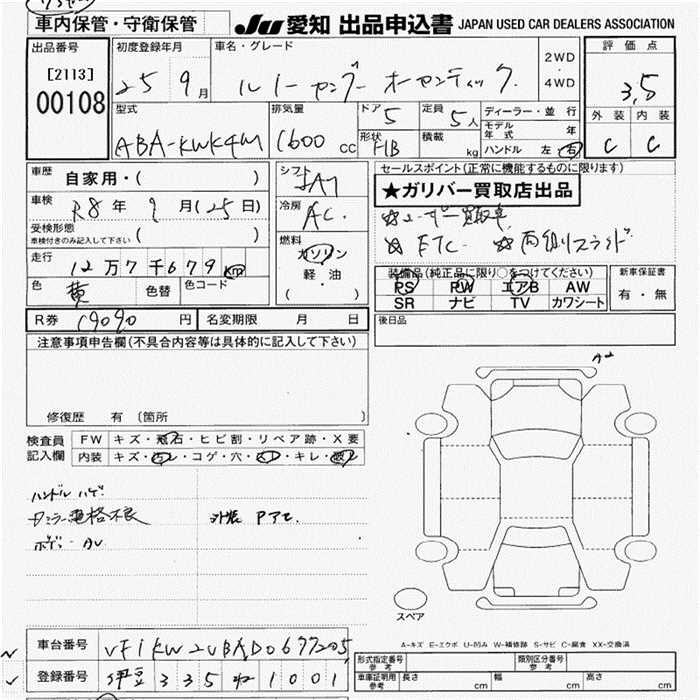 車内保管・守衛保管
JU 愛知 出品申込書 JAPAN USED CAR DEALERS ASSOCIATION
出品番号 初度登録年月 車名・グレード 2WD・4WD 評価点
[2113]
00108 25 9月 ルノー カングー オーセンティック 3.5
型式 排気量 ドア 5 定員 5人 ディーラー・並行 外装 内装
ABA-KWK4M 1600cc 形状 HB 積載 kg モデル年式 年 C C
ハンドル 左・右
車歴 自家用・( ) シフト セールスポイント(正常に機能するものに限ります)
★ガリバー買取店出品
車検 R8年 9月(25日) 冷房 AC.
☆ユーザー買取車
受検形態 車検付きのみ記入して下さい ( )
☆ETC ☆両側スライド
走行 12万7千679km 燃料 ガソリン 軽・油 ( )
装備品(純正品に限り○をつけてください) 新車保証書
色 黄 色替 色コード
PS PW エアB AW 有・無
SR ナビ TV カワシート
R券 19090円 名変期限 月 日 後日品
注意事項申告欄(不具合内容等は具体的に記入して下さい)
A2
修復歴 有 〔箇所
検査員 FW キズ・飛石・ヒビ割・リペア跡・X要
記入欄 内装 キズ・汚レ・コゲ・穴・スレ・キレ・破レ
ハンドル ハゲ
外装 Pアセ
ボデー AU
スペア
A-キズ E-エクボ U-凹み W-補修跡 S-サビ C-腐食 XX-交換済
車台番号 VF1KW2UBAD0677205
登録番号 伊豆 335 ね 1001
形式指定番号 参考 類別区分番号 参考
車庫証明用 参考 長さ cm 幅 cm 高さ cm